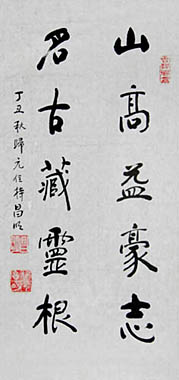 山高益豪志
古藏靈根
丁丑秋歸元住持昌明